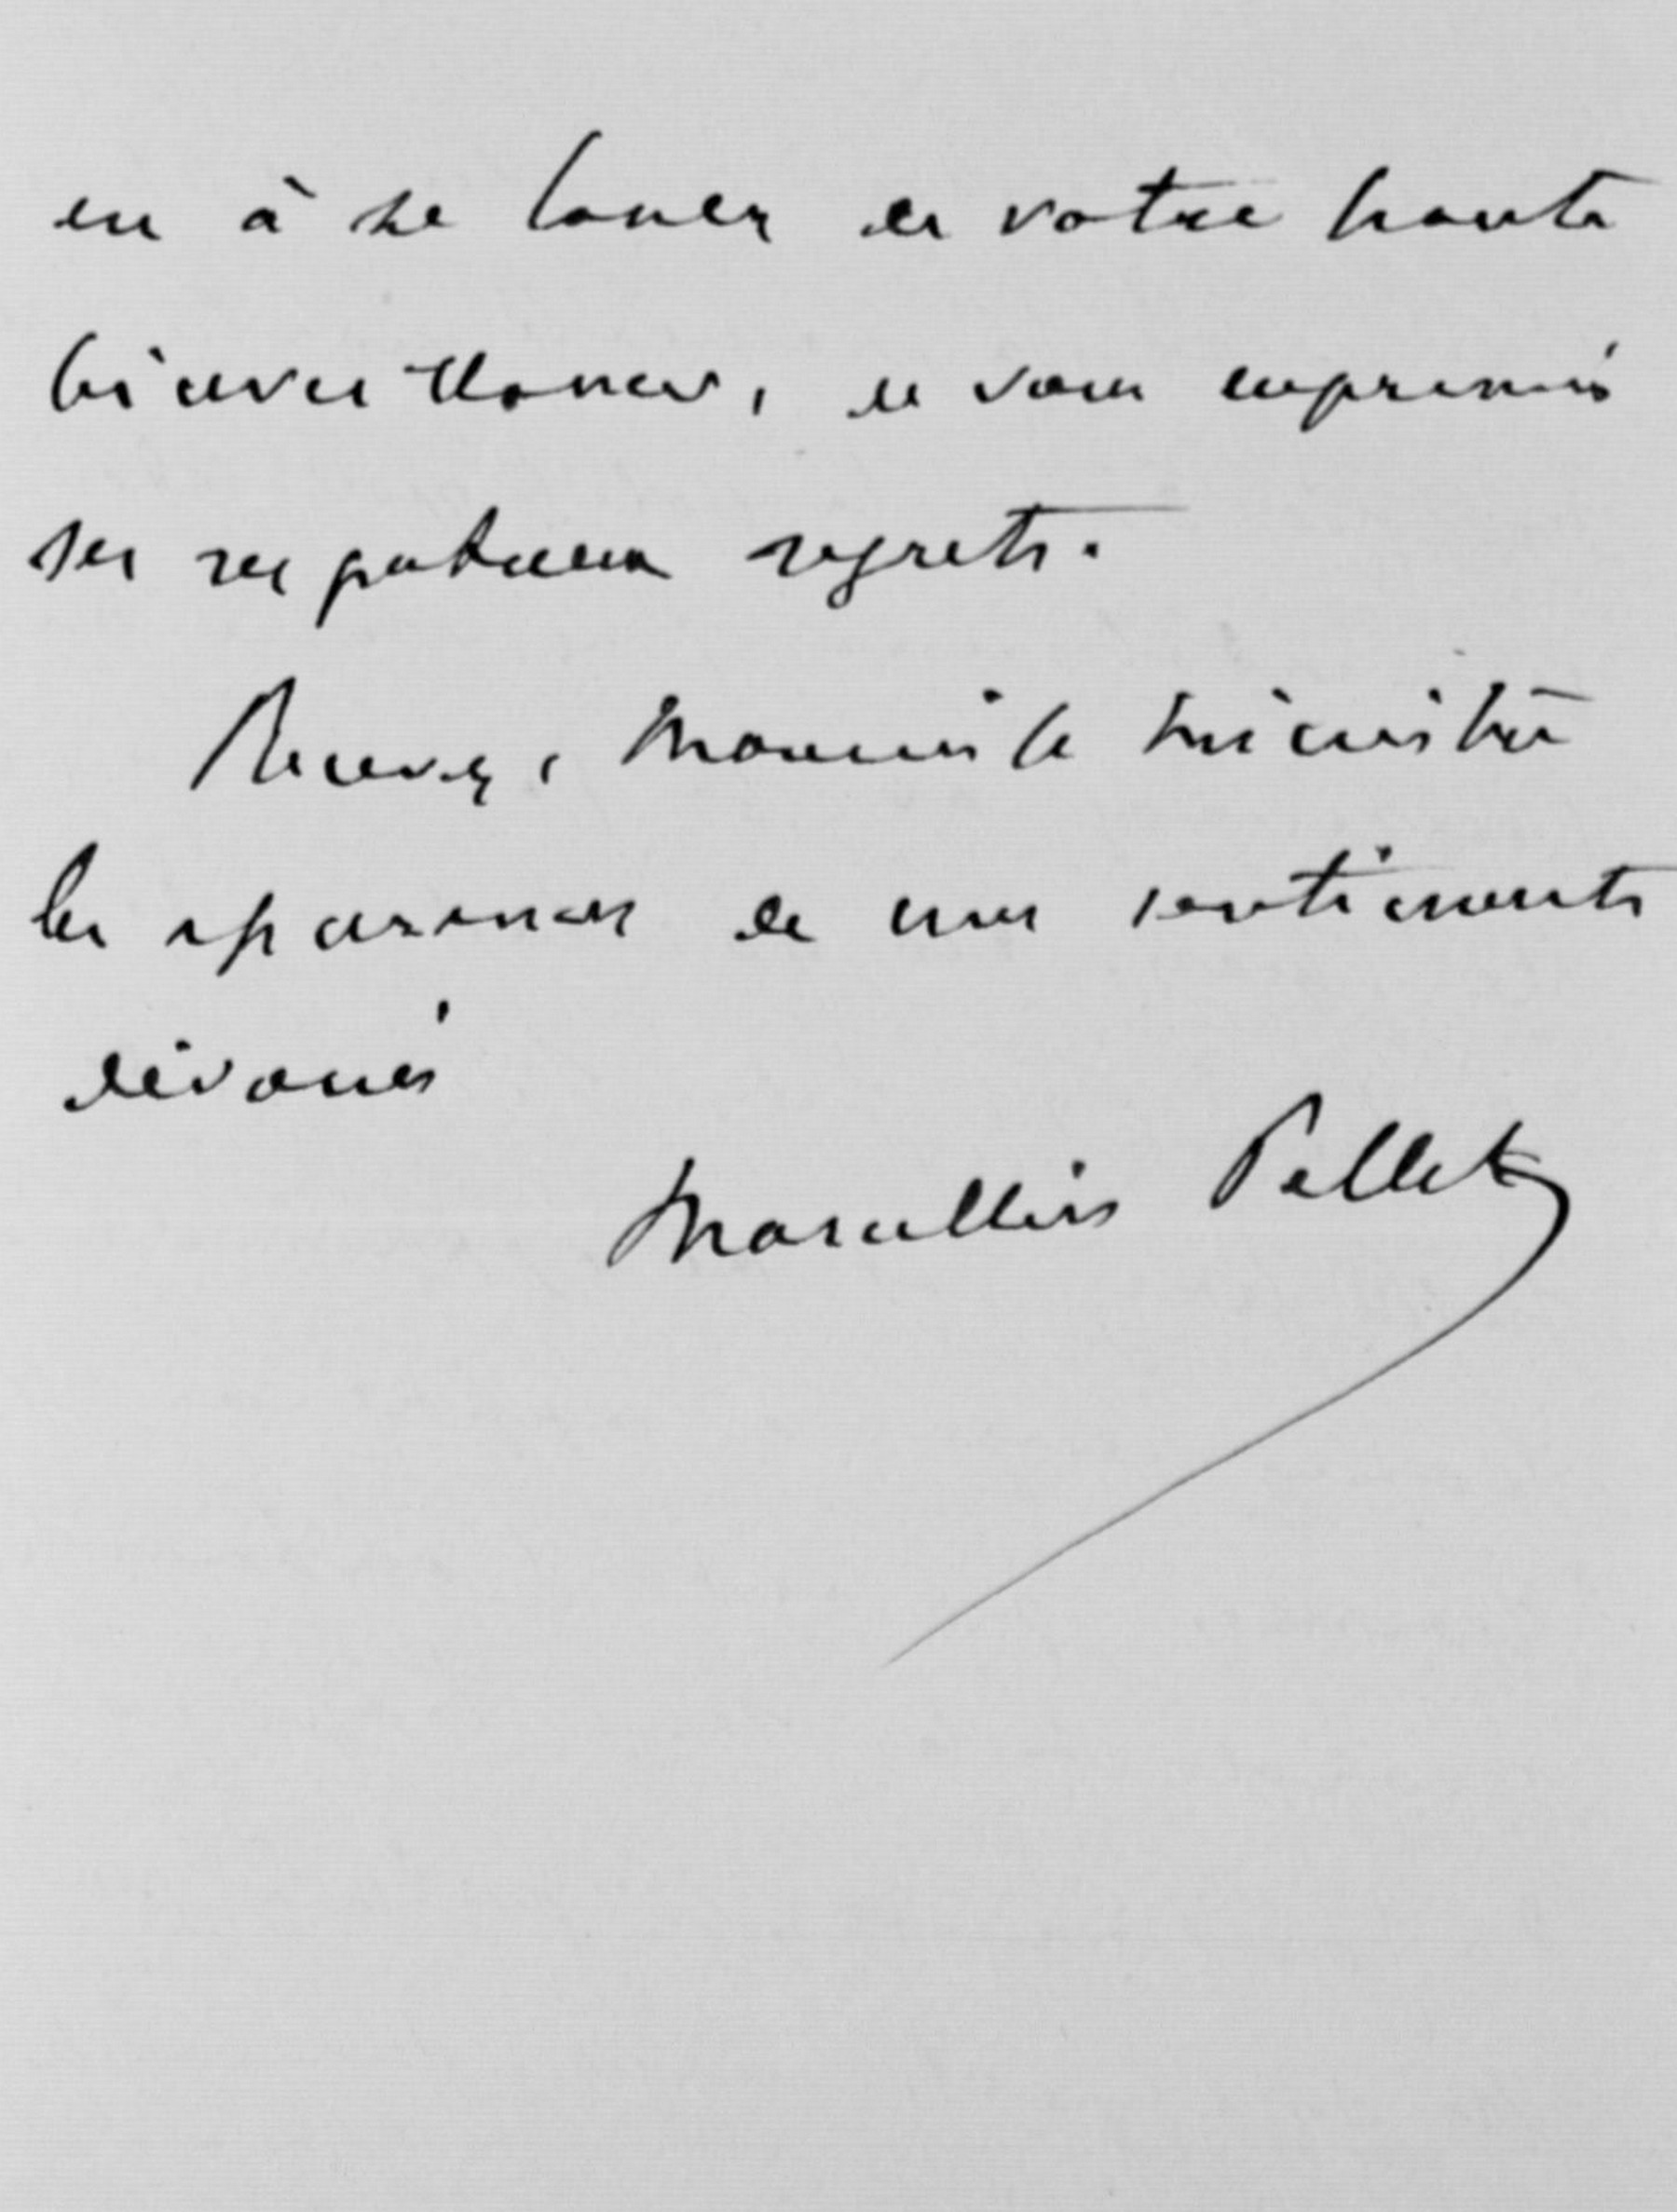 eu à se louer de votre haute
bienveillance, et vous exprimer
ses respectueux regrets.
Recevez, Monsieur le Ministre
les de mes sentiments
dévoués
Marcellin Pellet